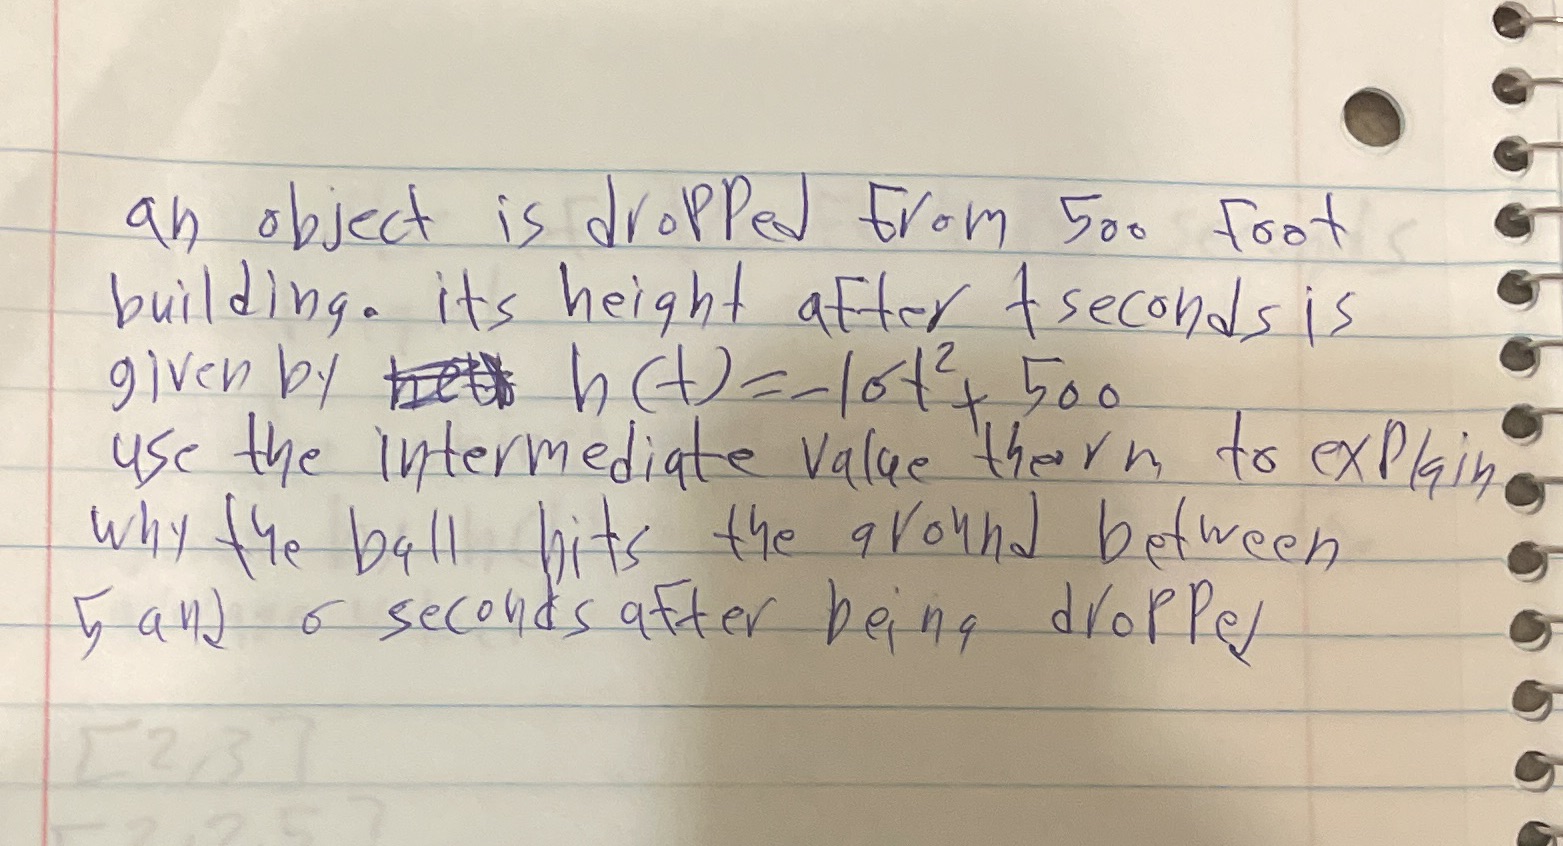 an object is dropped from 500 foot
building. its height after t seconds is
given by h(t)=-16t²+ 500
use the intermediate value therm to explain
why the ball hits the ground between
5 and 6 seconds after being dropped
[2,3]